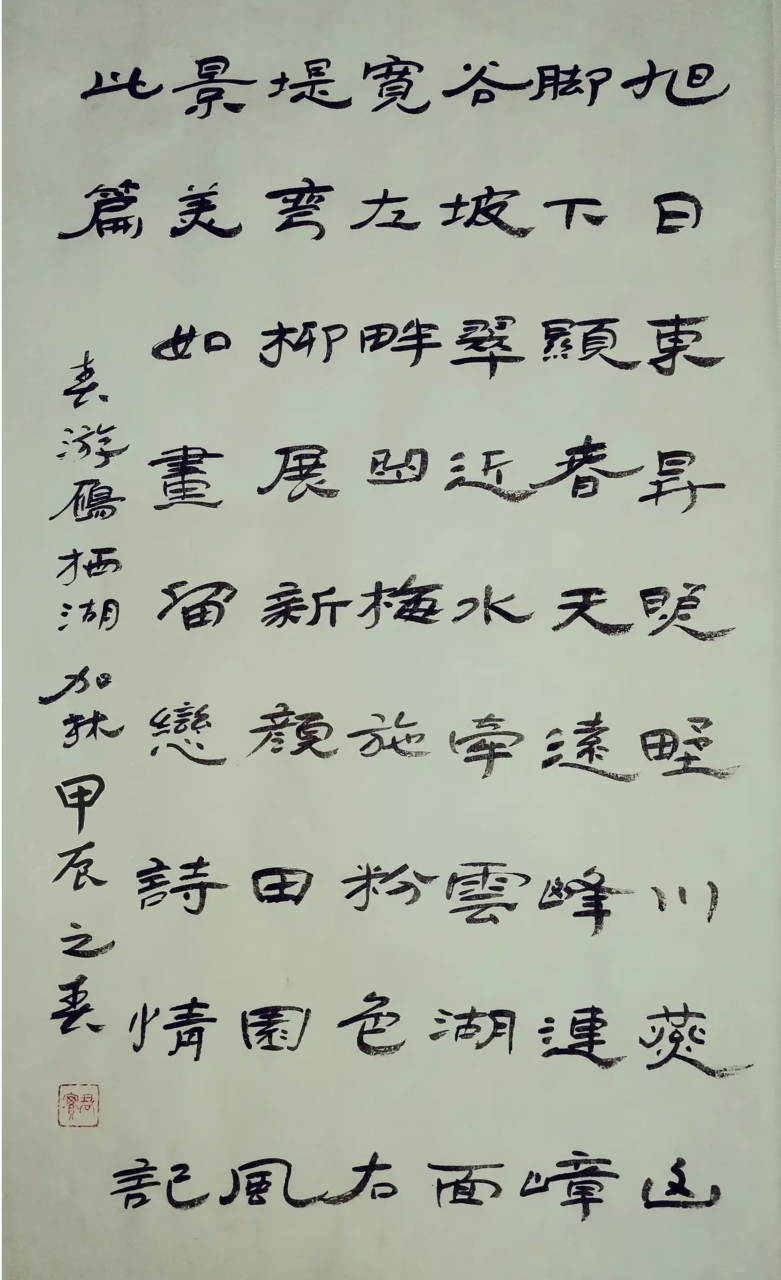 旭日東昇暎野川燕山
脚下顯春天遠峰連嶂
谷坡翠近水牽雲湖面
寬左畔梅施粉色右
堤彎柳展新顏田園風
景美如畫留戀詩情記
此篇
春游鴈栖湖加林甲辰之春